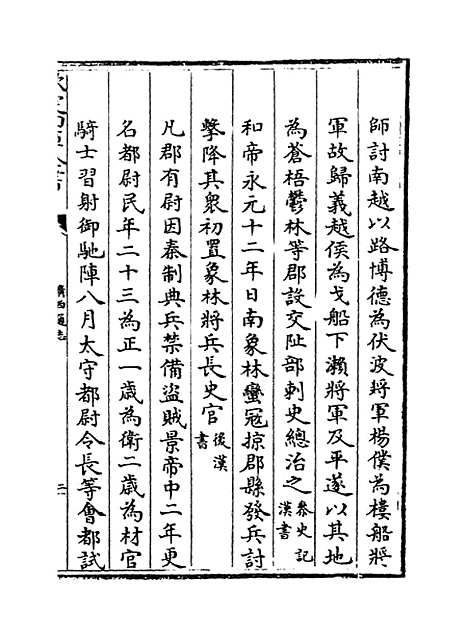 師討南越以路博德為伏波將軍楊僕為樓船將
軍故歸義越侯為戈船下瀨將軍及平遂以其地
為蒼梧鬱林等郡設交阯部刺史總治之叅史記漢書
和帝永元十二年日南象林蠻冦掠郡縣發兵討
擊降其衆初置象林將兵長史官後漢書
凡郡有尉因秦制典兵禁備盜賊景帝中二年更
名都尉民年二十三為正一歲為衛二歲為材官
騎士習射御馳陣八月太守都尉令長等會都試
廣西通志